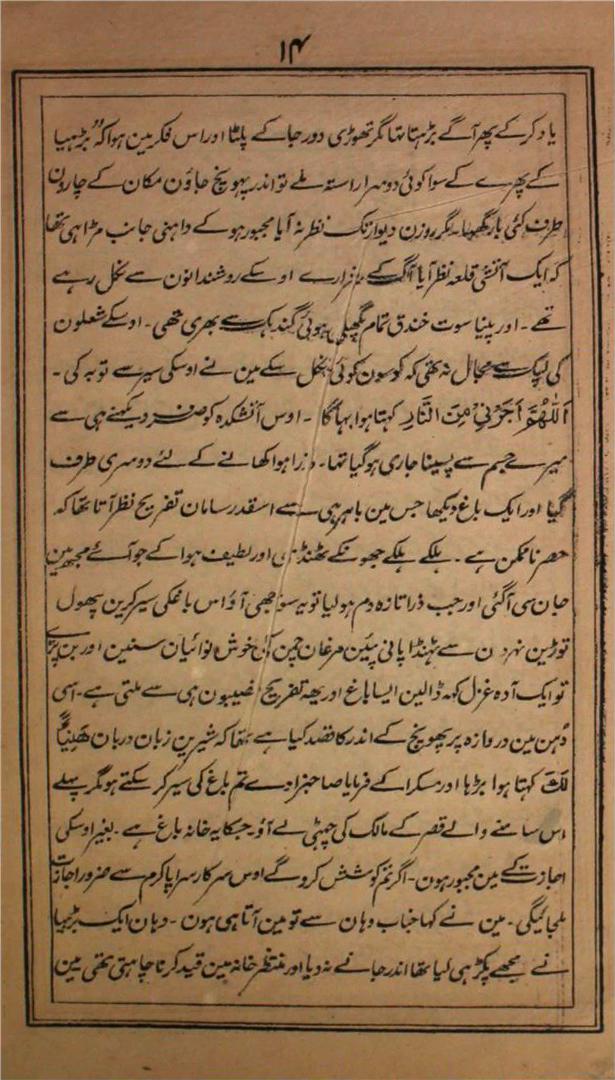 ۱۴
یاد کر کے پھر آگے بڑہتا تہا مگر تھوڑی دور جا کے پلٹا اور اس فکر مین ہوا کہ بڑہیا
کے پھرے کے سوا کوئی دوسرا راستہ ملے تو اندر پہونچ جاؤن مکان کے چارون
طرف کئی بار گھوما۔ مگر روزن دیوار تک نظر نہ آیا مجبور ہو کے داہنی جانب مڑا ہی تھا
کہ ایک آتشی قلعہ نظر آیا آگ کے شرارے اوسکے روشندانون سے نکل رہے
تھے۔ اور پنیا سوت خندق تمام پگھلی ہوئی گندہک سے بھری تھی۔ اوسکے شعلون
کی لپک سے مجال نہ تھی کہ کوسون کوئی نکل سکے مین نے اوسکی سیر سے توبہ کی۔
اَللّٰهُمَّ اَجِرْنِیْ مِنَ النَّارِ کہتا ہوا بہاگا۔ اوس آتشکدہ کو صرف دیکہنے ہی سے
میرے جسم سے پسینا جاری ہو گیا تہا۔ ذرا ہوا کھانے کے لئے دوسری طرف
گیا اور ایک باغ دیکھا جس مین باہر ہی سے اسقدر سامان تفریح نظر آتا تھا کہ
حصر ناممکن ہے۔ ہلکے ہلکے جھونکے ٹھنڈی اور لطیف ہوا کے جو آئے مجھ مین
جان سی آگئی اور جب ذرا تازہ دم ہو لیا تو یہ سوجھی آؤ اس باغ کی سیر کرین پھول
توڑین نہرون سے ٹہنڈا پانی پئین مرغان چمن کی خوش نوائیان سنین اور بن پڑے
تو ایک آدہ غزل کہہ ڈالین ایسا باغ اور یہ تفریح نصیبون ہی سے ملتی ہے۔ اسی
دُہن مین دروازہ پر پھونچ کے اندر کا قصد کیا ہے تھا کہ شیرین زبان دربان ھَنِیْئًا
لَّکَ کہتا ہوا بڑہا اور مسکرا کے فرمایا صاحبزادے تم باغ کی سیر کر سکتے ہو مگر پہلے
اس سامنے والے قصر کے مالک کی چہٹی لے آؤ۔ جسکا یہ خانہ باغ ہے۔ بغیر اوسکی
اجازت کے مین مجبور ہون۔ اگر تم کوشش کرو گے اوس سرکار سراپا کرم سے ضرور اجازت
ملجائیگی۔ مین نے کہا جناب وہان سے تو مین آتا ہی ہون۔ وہان ایک بڑہیا
نے مجھے پکڑ ہی لیا تھا اندر جانے نہ دیا اور منتظر خانہ مین قید کرنا چاہتی تھی مین